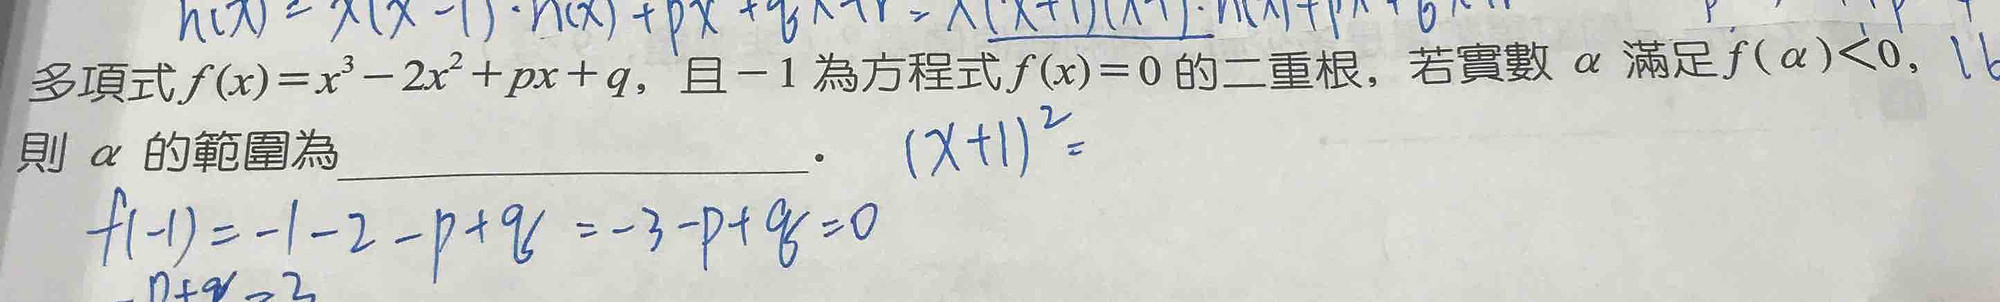 h(x) = x(x-1)·h(x)+px
多項式 f(x)=x³-2x²+px+q，且-1為方程式 f(x)=0 的二重根，若實數 α 滿足 f(α)<0，
則 α 的範圍為＿＿＿＿＿＿＿＿． (x+1)² =
f(-1)=-1-2-p+q =-3-p+q=0
-p+q=3